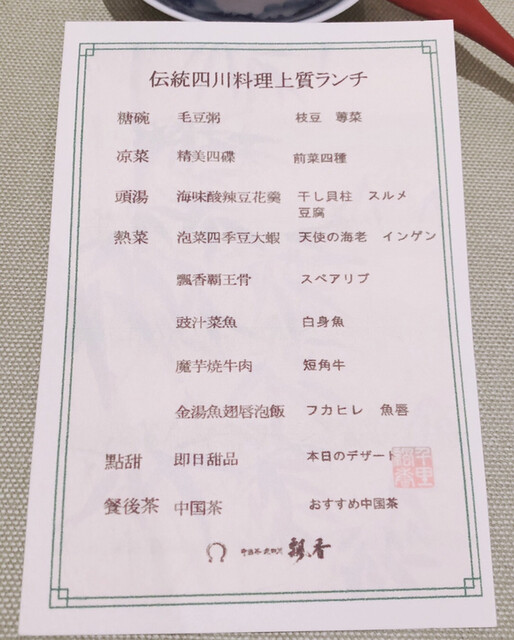 伝統四川料理上質ランチ
糖碗 毛豆粥 枝豆 蓴菜
凉菜 精美四碟 前菜四種
頭湯 海味酸辣豆花羹 干し貝柱 スルメ
豆腐
熱菜 泡菜四季豆大蝦 天使の海老 インゲン
飄香覇王骨 スペアリブ
豉汁菜魚 白身魚
魔芋焼牛肉 短角牛
金湯魚翅唇泡飯 フカヒレ 魚唇
點甜 即日甜品 本日のデザート
餐後茶 中国茶 おすすめ中国茶
飄香